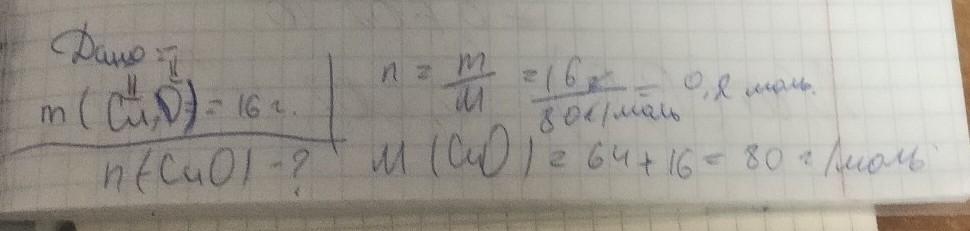 Дано:
II II
m (CuO) = 16 г.
n (CuO) - ?
n = m/M = 16 г/80 г/моль = 0,2 моль.
M (CuO) = 64 + 16 = 80 г/моль